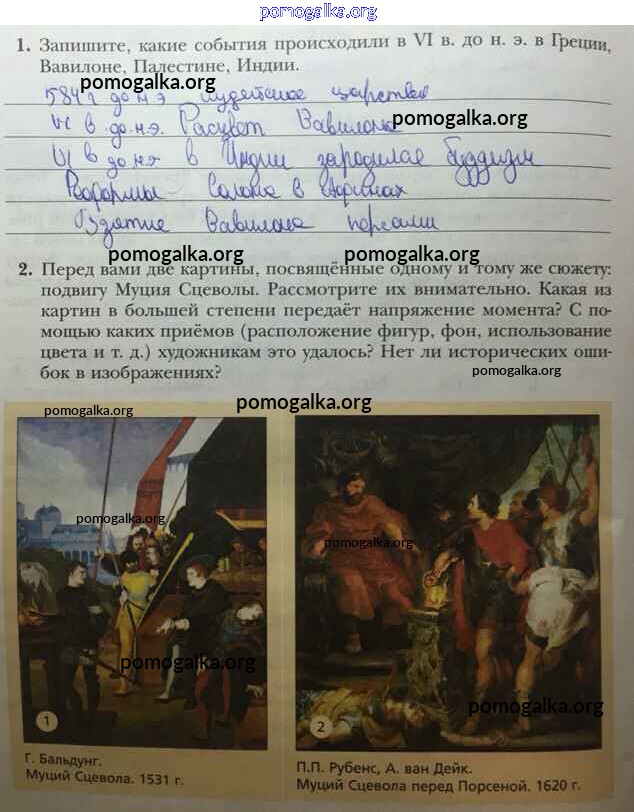 pomogalka.org
1. Запишите, какие события происходили в VI в. до н. э. в Греции,
Вавилоне, Палестине, Индии.
pomogalka.org
584 г до н э иудейское царство
pomogalka.org
VI в до.н.э. Расцвет Вавилона
VI в до н.э в Индии зародился буддизм
Реформы Солона в Афинах
Взятие Вавилона персами
pomogalka.org pomogalka.org
2. Перед вами две картины, посвящённые одному и тому же сюжету:
подвигу Муция Сцеволы. Рассмотрите их внимательно. Какая из
картин в большей степени передаёт напряжение момента? С по-
мощью каких приёмов (расположение фигур, фон, использование
цвета и т. д.) художникам это удалось? Нет ли исторических оши-
бок в изображениях?
pomogalka.org
pomogalka.org
pomogalka.org
pomogalka.org
pomogalka.org
pomogalka.org
pomogalka.org
1
2
Г. Бальдунг.
Муций Сцевола. 1531 г.
П.П. Рубенс, А. ван Дейк.
Муций Сцевола перед Порсеной. 1620 г.